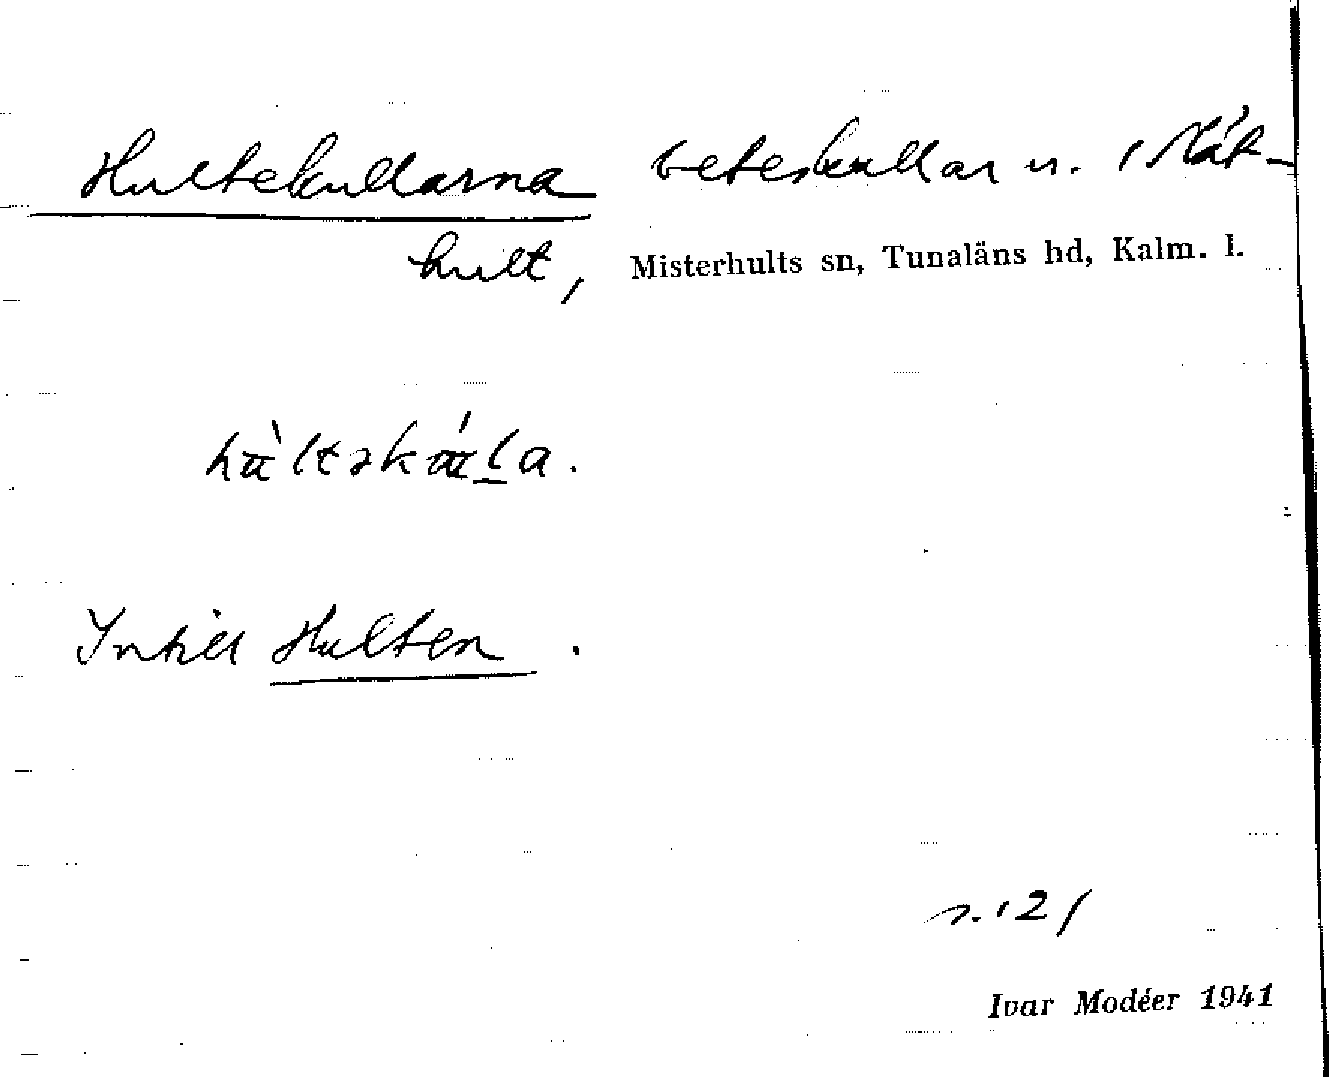 Hultekullarna beteskullar n. 1 Slät-
hult, Misterhults sn, Tunaläns hd, Kalm. l.
Intill Hulten .
s. 121
Ivar Modéer 1941